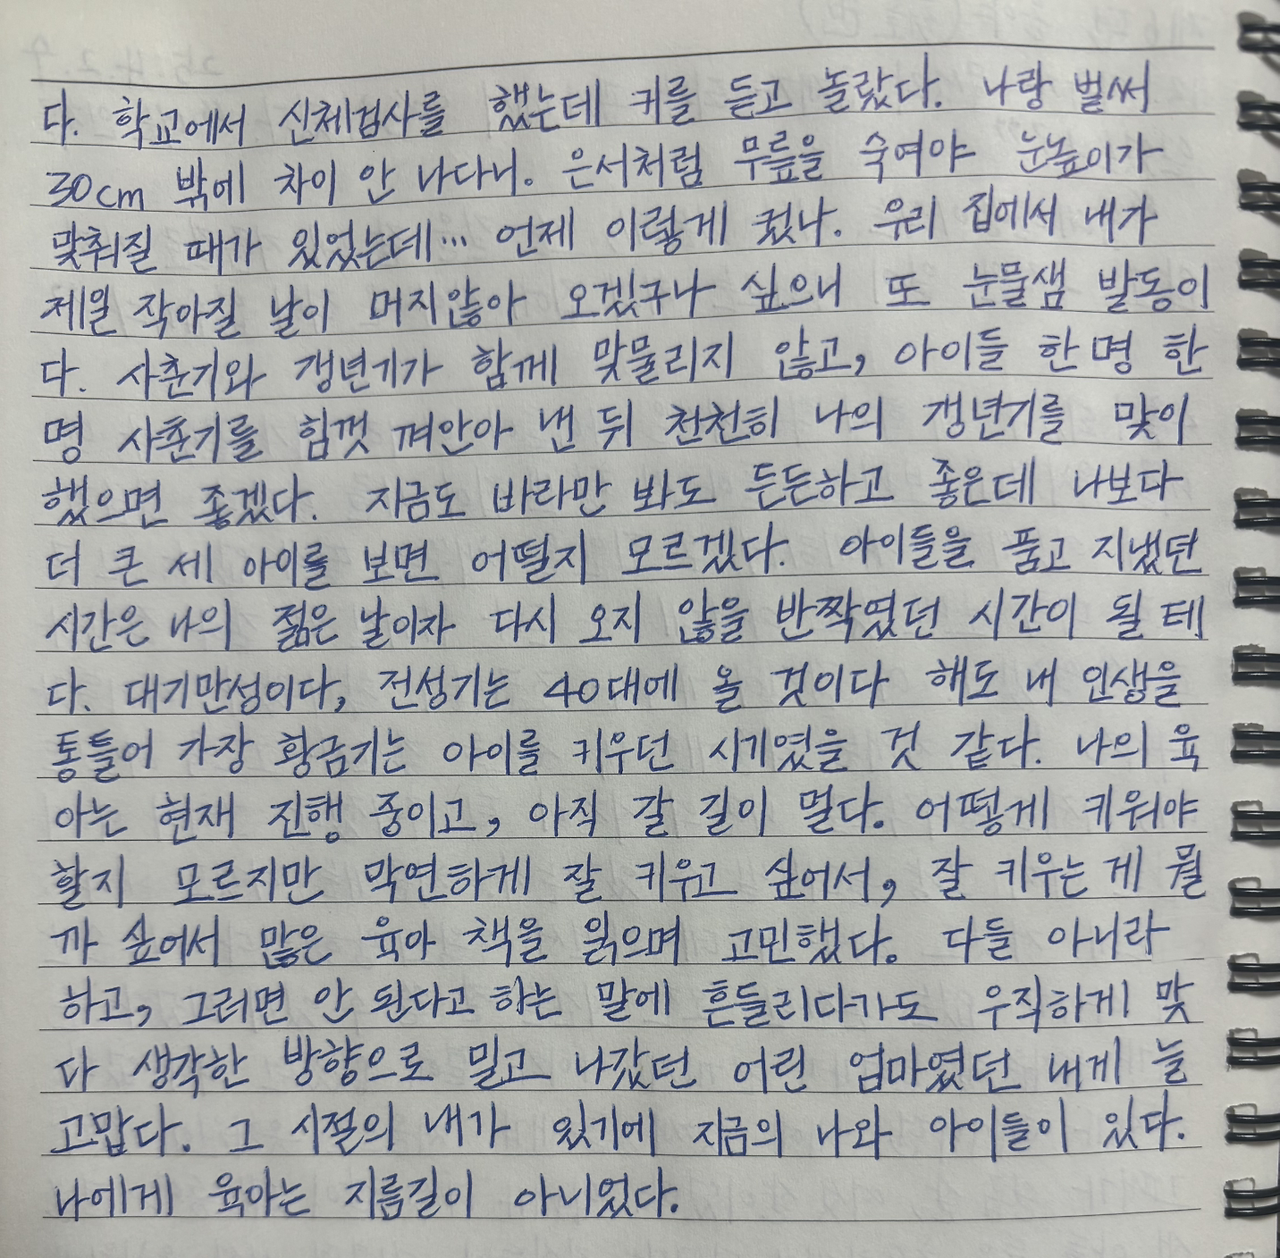 다. 학교에서 신체검사를 했는데 키를 듣고 놀랐다. 나랑 벌써
30cm 밖에 차이 안 나다니. 은서처럼 무릎을 숙여야 눈높이가
맞춰질 때가 있었는데… 언제 이렇게 컸나. 우리 집에서 내가
제일 작아질 날이 머지않아 오겠구나 싶으니 또 눈물샘 발동이
다. 사춘기와 갱년기가 함께 맞물리지 않고, 아이들 한 명 한
명 사춘기를 힘껏 껴안아 낸 뒤 천천히 나의 갱년기를 맞이
했으면 좋겠다. 지금도 바라만 봐도 든든하고 좋은데 나보다
더 큰 세 아이를 보면 어떨지 모르겠다. 아이들을 품고 지냈던
시간은 나의 젊은 날이자 다시 오지 않을 반짝였던 시간이 될 테
다. 대기만성이다, 전성기는 40대에 올 것이다 해도 내 인생을
통틀어 가장 황금기는 아이를 키우던 시기였을 것 같다. 나의 육
아는 현재 진행 중이고, 아직 갈 길이 멀다. 어떻게 키워야
할지 모르지만 막연하게 잘 키우고 싶어서, 잘 키우는 게 뭘
까 싶어서 많은 육아 책을 읽으며 고민했다. 다들 아니라
하고, 그러면 안 된다고 하는 말에 흔들리다가도 우직하게 맞
다 생각한 방향으로 밀고 나갔던 어린 엄마였던 내게 늘
고맙다. 그 시절의 내가 있기에 지금의 나와 아이들이 있다.
나에게 육아는 지름길이 아니었다.